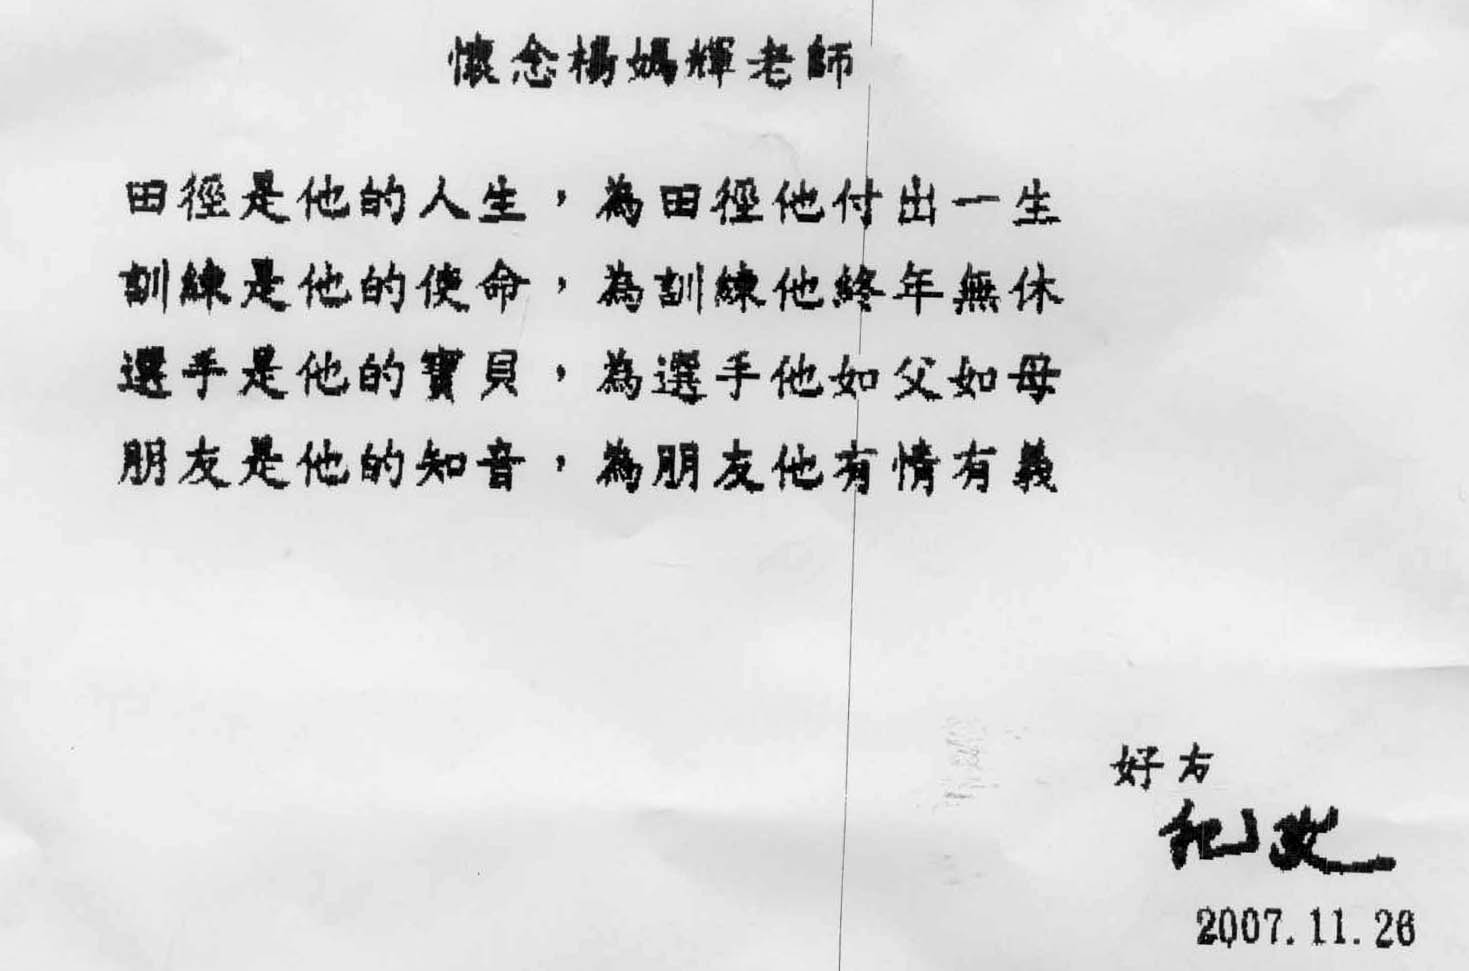 懷念楊媽輝老師
田徑是他的人生，為田徑他付出一生
訓練是他的使命，為訓練他終年無休
選手是他的寶貝，為選手他如父如母
朋友是他的知音，為朋友他有情有義
好友
紀政
2007.11.26